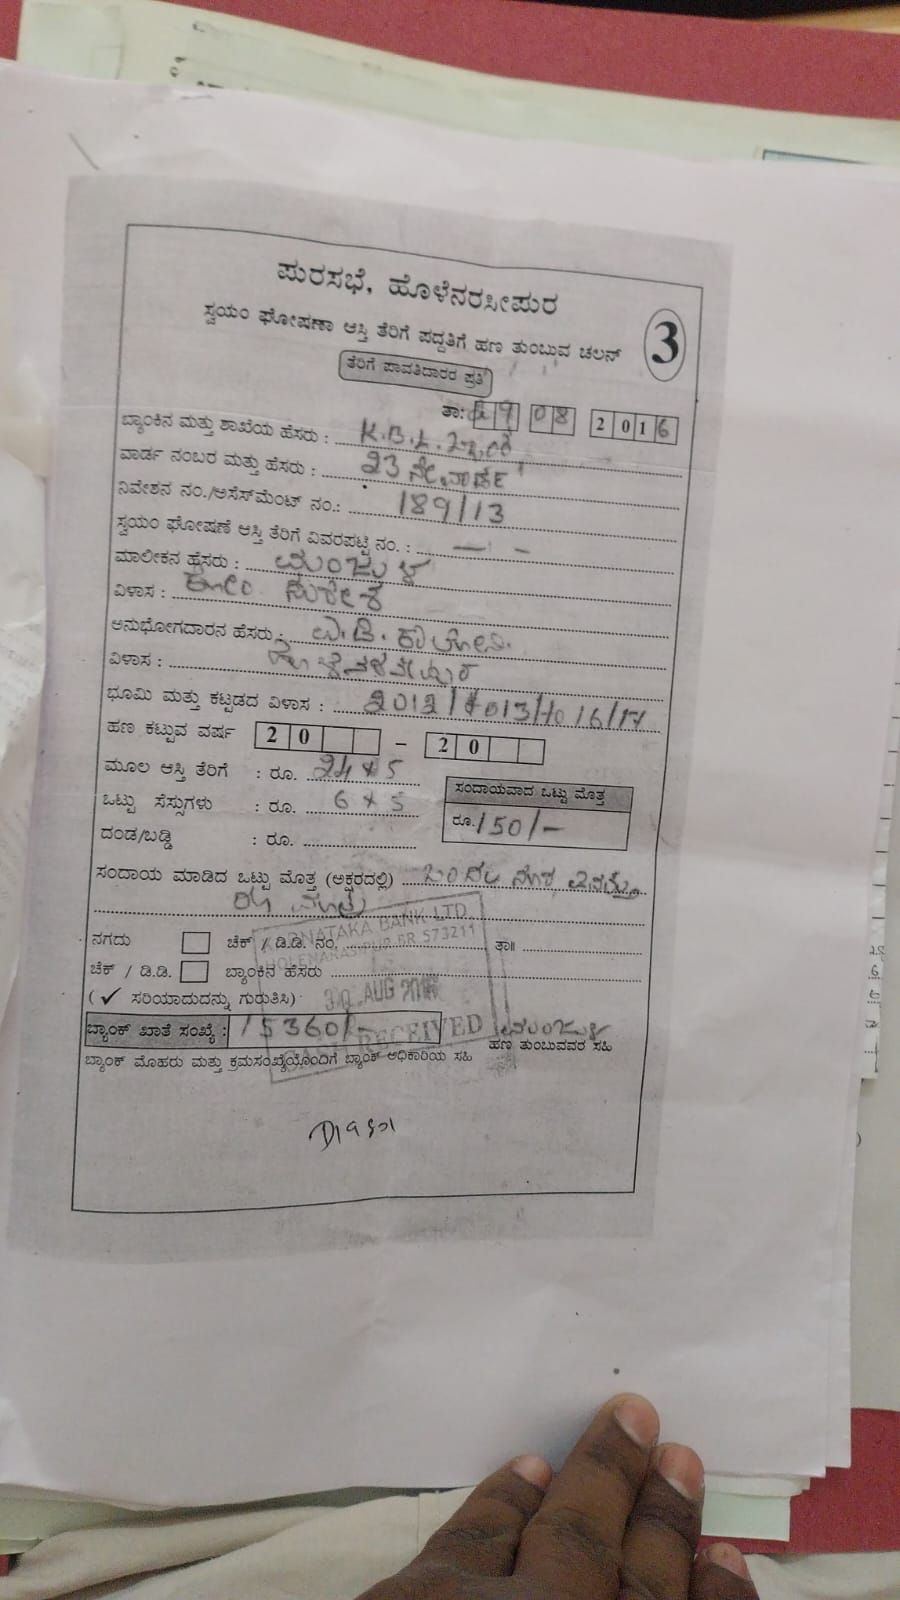 ಪುರಸಭೆ, ಹೊಳೆನರಸೀಪುರ
ಸ್ವಯಂ ಘೋಷಣಾ ಆಸ್ತಿ ತೆರಿಗೆ ಪದ್ಧತಿಗೆ ಹಣ ತುಂಬುವ ಚಲನ್
3
ತೆರಿಗೆ ಪಾವತಿದಾರರ ಪ್ರತಿ
ತಾ: 08 2016
ಬ್ಯಾಂಕಿನ ಮತ್ತು ಶಾಖೆಯ ಹೆಸರು : K.B.L.
ವಾರ್ಡ ನಂಬರ ಮತ್ತು ಹೆಸರು : 23 ನೇ ವಾರ್ಡ್
ನಿವೇಶನ ನಂ./ಅಸೆಸ್‌ಮೆಂಟ್ ನಂ.: 189/13
ಸ್ವಯಂ ಘೋಷಣೆ ಆಸ್ತಿ ತೆರಿಗೆ ವಿವರಪಟ್ಟಿ ನಂ. : — -
ಮಾಲೀಕನ ಹೆಸರು : ಮಂಜುಳ
ವಿಳಾಸ : ಕೋಂ ಸುರೇಶ
ಅನುಭೋಗದಾರನ ಹೆಸರು :
ವಿಳಾಸ :
ಭೂಮಿ ಮತ್ತು ಕಟ್ಟಡದ ವಿಳಾಸ :
ಹಣ ಕಟ್ಟುವ ವರ್ಷ 20 – 20
ಮೂಲ ಆಸ್ತಿ ತೆರಿಗೆ : ರೂ. 24 x 5
ಸಂದಾಯವಾದ ಒಟ್ಟು ಮೊತ್ತ
ಒಟ್ಟು ಸೆಸ್ಸುಗಳು : ರೂ. 6 x 5
ರೂ. 150/-
ದಂಡ/ಬಡ್ಡಿ : ರೂ.
ಸಂದಾಯ ಮಾಡಿದ ಒಟ್ಟು ಮೊತ್ತ (ಅಕ್ಷರದಲ್ಲಿ)
ನಗದು ಚೆಕ್ / ಡಿ.ಡಿ. ನಂ. ತಾ॥
ಚೆಕ್ / ಡಿ.ಡಿ. ಬ್ಯಾಂಕಿನ ಹೆಸರು
(✓ ಸರಿಯಾದುದನ್ನು ಗುರುತಿಸಿ)
KARNATAKA BANK LTD.
HOLENARASIPUR BR 573211
30 AUG 2016
RECEIVED
ಬ್ಯಾಂಕ್ ಖಾತೆ ಸಂಖ್ಯೆ : 15360/- ಮಂಜುಳ
ಹಣ ತುಂಬುವವರ ಸಹಿ
ಬ್ಯಾಂಕ್ ಮೊಹರು ಮತ್ತು ಕ್ರಮಸಂಖ್ಯೆಯೊಂದಿಗೆ ಬ್ಯಾಂಕ್ ಅಧಿಕಾರಿಯ ಸಹಿ